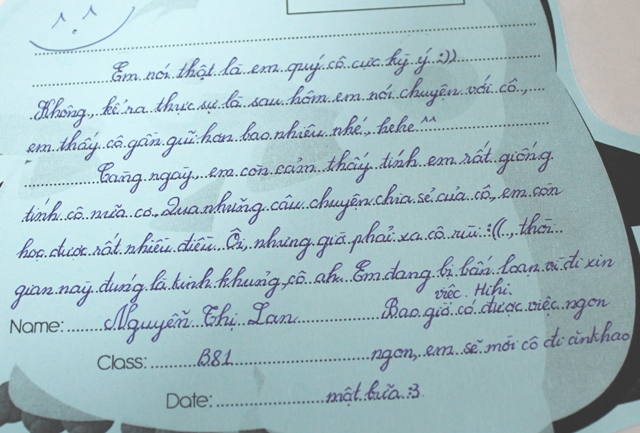 Em nói thật là em quý cô cực kỳ ý :))
Không, kể ra thực sự là sau hôm em nói chuyện với cô,
em thấy cô gần gũi hơn bao nhiêu nhé, hehe ^^
Càng ngày, em còn cảm thấy tính em rất giống
tính cô nữa cơ. Qua những câu chuyện chia sẻ của cô, em còn
học được rất nhiều điều. Ôi, nhưng giờ phải xa cô rùi :((, thời
gian này đúng là kinh khủng, cô ah. Em đang bị bấn loạn vì đi xin
việc. Hihi.
Name: Nguyễn Thị Lan Bao giờ có được việc ngon
Class: B81 ngon, em sẽ mời cô đi ănkhao
Date: một bữa :3